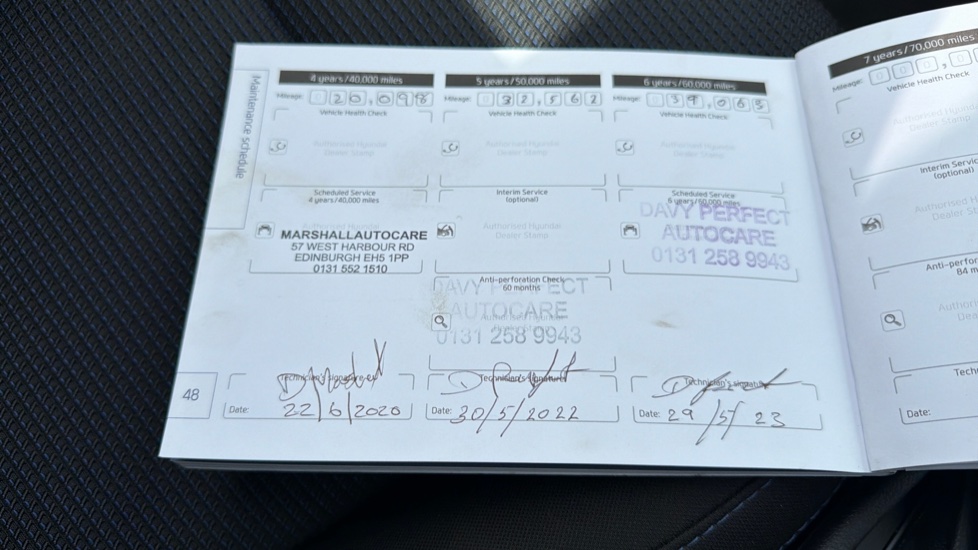 Maintenance schedule
4 years/40,000 miles
Mileage: 020,098
Vehicle Health Check
Authorised Hyundai
Dealer Stamp
Scheduled Service
4 years/40,000 miles
MARSHALLAUTOCARE
57 WEST HARBOUR RD
EDINBURGH EH5 1PP
0131 552 1510
Technician's signature
Date: 22/6/2020
5 years/50,000 miles
Mileage: 032,562
Vehicle Health Check
Authorised Hyundai
Dealer Stamp
Interim Service
(optional)
Authorised Hyundai
Dealer Stamp
Anti-perforation Check
60 months
DAVY PERFECT
AUTOCARE
0131 258 9943
Technician's signature
Date: 30/5/2022
6 years/60,000 miles
Mileage: 039,063
Vehicle Health Check
Authorised Hyundai
Dealer Stamp
Scheduled Service
6 years/60,000 miles
DAVY PERFECT
AUTOCARE
0131 258 9943
Technician's signature
Date: 29/5/23
48
7 years/70,000 miles
Mileage: 000,0
Vehicle Health Check
Authorised Hyundai
Dealer Stamp
Interim Servic
(optional)
Authorised H
Dealer S
Anti-perfor
84 m
Author
Dea
Tech
Date: